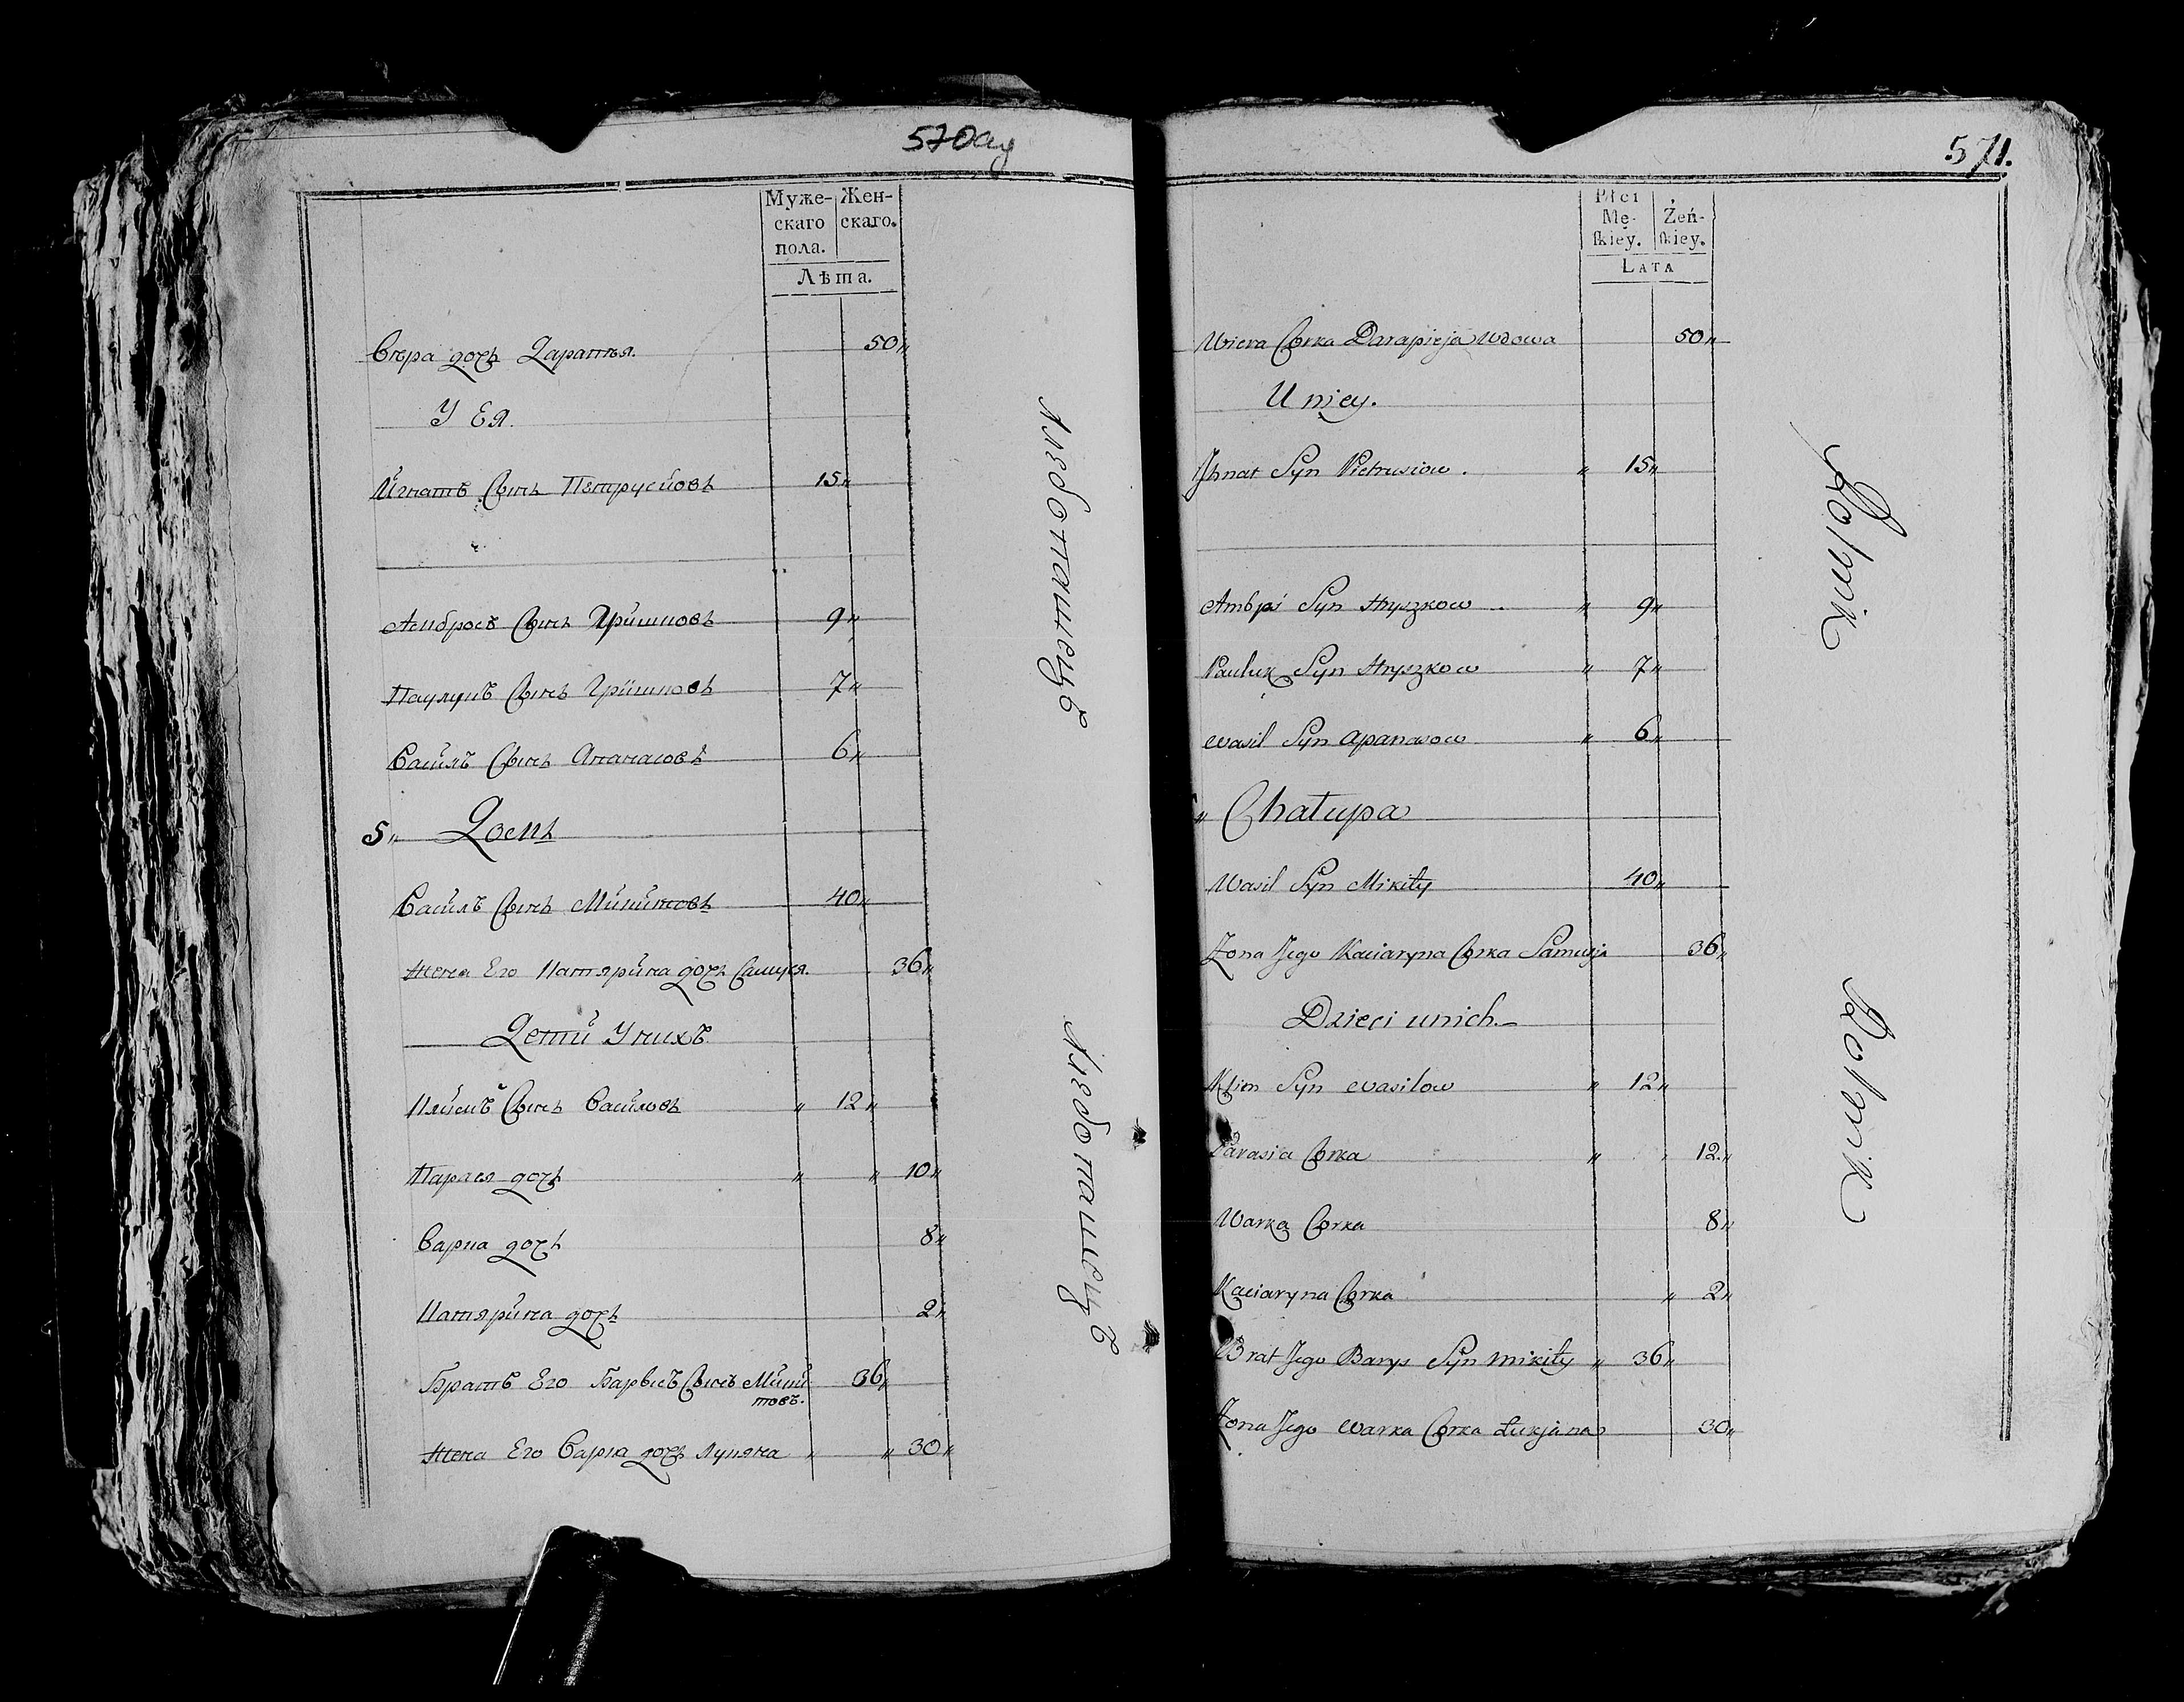 570
Муже-
скаго
пола.
Жен-
скаго.
Лѣта.
Вѣра дочь Дарапея. 50
У Ея.
Игнатъ Сынъ Петрусйовъ 15
Амбросъ Сынъ Гришковъ 9
Паулукъ Сынъ Гришковъ 7
Василь Сынъ Апанасовъ 6
5 Домъ
Василь Сынъ Микитовъ 40
Жена Его Катярина дочь Самуся. 36
Дети Унихъ
Климъ Сынъ Василовъ 12
Парася дочь 10
Варка дочь 8
Катярина дочь 2
Братъ Его Барысъ Сынъ Мики
товъ. 36
Жена Его Варка дочь Лукяна 30
Хлебопашецъ
Хлебопашецъ
571.
Płci
Mę-
ſkiey.
Żeń-
ſkiey.
LATA
Wiera Corka Darapieja wdowa 50
U niey.
Jhnat Syn Pietrusiow. 15
Ambroś Syn Hryszkow 9
Pauluk Syn Hryszkow 7
Wasil Syn Apanasow 6
Chałupa
Wasil Syn Mikity 40
Żona Jego Kaciaryna Corka Samusia 36
Dzieci unich.
Klim Syn Wasilow 12
Parasia Corka 12
Warka Corka 8
Kaciaryna Corka 2
Brat Jego Barys Syn Mikity 36
Żona Jego Warka Corka Łukjana 30
Rolnik
Rolnik